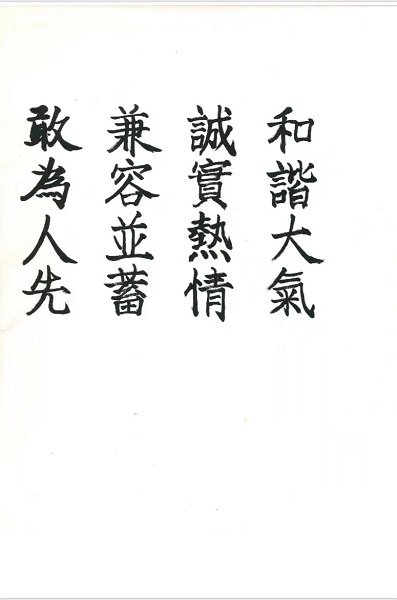 和諧大氣
誠實熱情
兼容並蓄
敢為人先